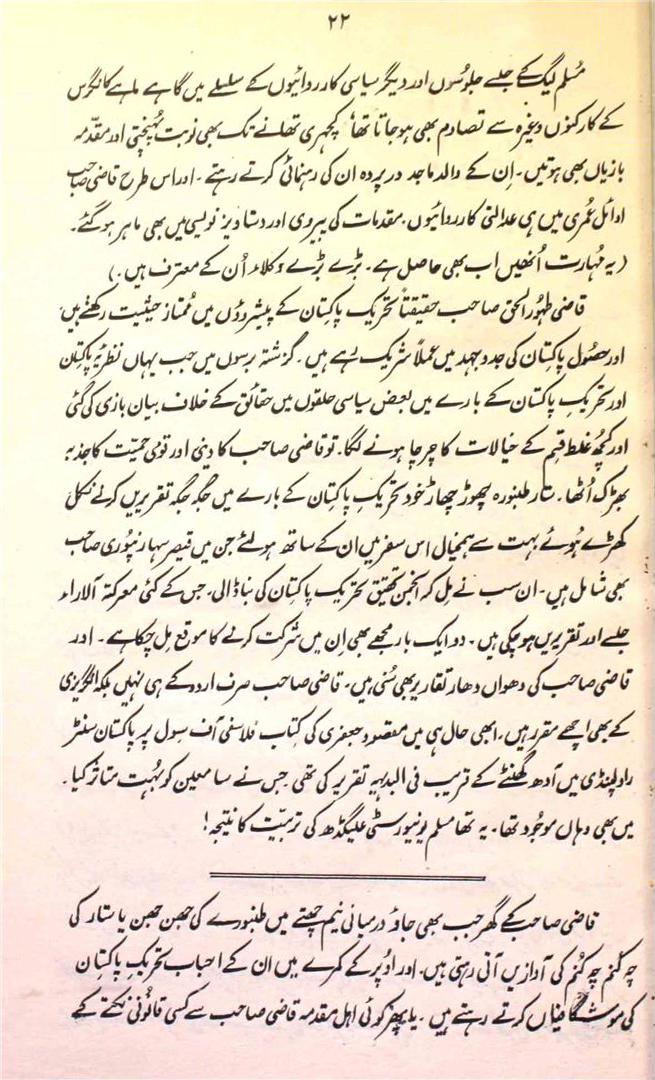 ۲۲
مُسلم لیگ کے جلسے جلوُسوں اور دیگر سیاسی کارروائیوں کے سلسلے میں گاہے ماہے کانگرس
کے کارکنوں وغیرہ سے تصادم بھی ہو جاتا تھا، کچہری تھانے تک بھی نوبت پہُنچتی اور مقدّمہ
بازیاں بھی ہوتیں۔ اِن کے والد ماجد در پردہ ان کی رہنمائی کرتے رہتے۔ اور اس طرح قاضی صاحب
اوائل عُمری میں ہی عدالتی کارروائیوں، مقدمات کی پیروی اور دستاویز نویسی میں بھی ماہر ہو گئے۔
(یہ مُہارت اُنھیں اب بھی حاصل ہے۔ بڑے بڑے وکلاء اُن کے معترف ہیں۔)
قاضی ظہوُر الحق صاحب حقیقتاً تحریک پاکستان کے پیشروؤں میں مُمتاز حیثیت رکھتے ہیں،
اور حصُول پاکستان کی جدوجہد میں عملاً شریک رہے ہیں۔ گزشتہ برسوں میں جب یہاں نظریّہ پاکستان
اور تحریکِ پاکستان کے بارے میں بعض سیاسی حلقوں میں حقائق کے خلاف بیان بازی کی گئی
اور کچھ غلط قِسم کے خیالات کا چرچا ہونے لگا۔ تو قاضی صاحب کا دینی اور قومی حمیّت کا جذبہ
بھڑک اُٹھا۔ ستار طنبورہ چھوڑ چھاڑ خود تحریکِ پاکستان کے بارے میں جگہ جگہ تقریریں کرنے نکل
کھڑے ہُوئے بہت سے ہمخیال اس سفر میں ان کے ساتھ ہو لئے جن میں قیصر سہارنپوُری صاحب
بھی شامل ہیں۔ ان سب نے مِل کر انجمن تحقیق تحریک پاکستان کی بنا ڈالی، جس کے کئی معرکتہ الآراء
جلسے اور تقریریں ہو چکی ہیں۔ دو ایک بار مجھے بھی اِن میں شرکت کرنے کا موقع مِل چکا ہے۔ اور
قاضی صاحب کی دھواں دھار تقاریر بھی سُنی ہیں۔ قاضی صاحب صرف اردو کے ہی نہیں بلکہ انگریزی
کے بھی اچھے مقرر ہیں۔ ابھی حال ہی میں مقصود جعفری کی کتاب فلاسفی آف سول پر پاکستان سنٹر
راولپنڈی میں آدھ گھنٹے کے قریب فی البدیہہ تقریر کی تھی جس نے سامعین کو بہُت متاثر کیا۔
میں بھی وہاں موجُود تھا۔ یہ تھا مسلم یونیورسٹی علیگڈھ کی تربیّت کا نتیجہ!
قاضی صاحب کے گھر جب بھی جاؤ درمیانی نیم چھتے میں طنبورے کی جھن جھن یا ستار کی
چہ کُنم چہ کُنم کی آوازیں آتی رہتی ہیں۔ اور اوُپر کے کمرے میں ان کے احباب تحریکِ پاکستان
کی موشگافیاں کرتے رہتے ہیں۔ یا پھر کوئی اہلِ مقدمہ قاضی صاحب سے کسی قانُونی نکتے کے